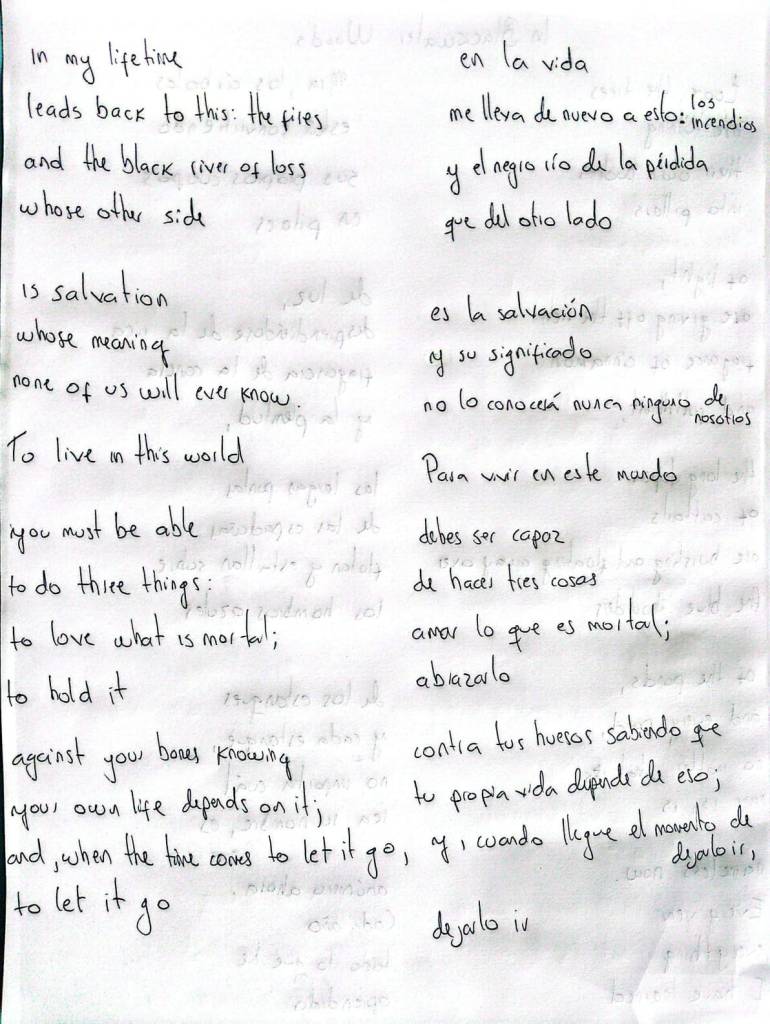 in my lifetime
leads back to this: the fires
and the black river of loss
whose other side
is salvation
whose meaning
none of us will ever know.
To live in this world
you must be able
to do three things:
to love what is mortal;
to hold it
against your bones knowing
your own life depends on it;
and, when the time comes to let it go,
to let it go
en la vida
me lleva de nuevo a esto: los incendios
y el negro río de la pérdida
que del otro lado
es la salvación
y su significado
no lo conocerá nunca ninguno de nosotros
Para vivir en este mundo
debes ser capaz
de hacer tres cosas
amar lo que es mortal;
abrazarlo
contra tus huesos sabiendo que
tu propia vida depende de eso;
y, cuando llegue el momento de dejarlo ir,
dejarlo ir